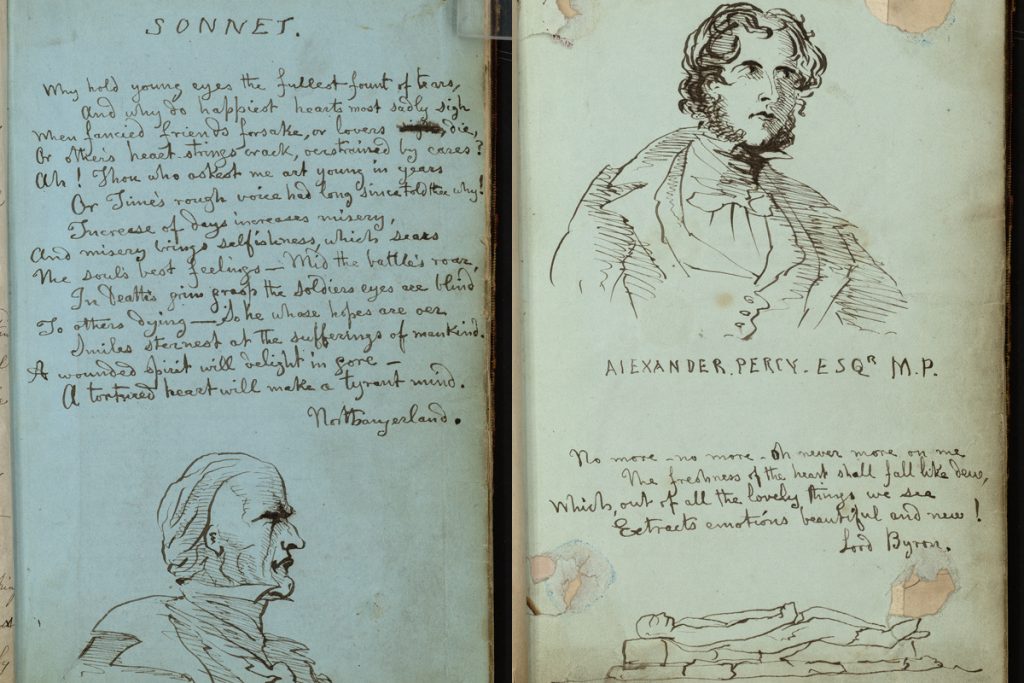 SONNET.
Why hold young eyes the fullest fount of tears,
And why do happiest hearts most sadly sigh
When fancied friends forsake, or lovers die,
Or other's heart-strings crack, overstrained by cares?
Ah! Thou who askest me art young in years
Or Time's rough voice had long since told thee why!
Increase of days increases misery,
And misery brings selfishness, which sears
The soul's best feelings — Mid the battle's roar,
In Death's grim grasp the soldiers eyes are blind
To others dying — So he whose hopes are oer
Smiles sternest at the sufferings of mankind.
A wounded spirit will delight in gore —
A tortured heart will make a tyrant mind.
Northangerland.
ALEXANDER. PERCY. ESQR M.P.
No more - no more - Oh never more on me
The freshness of the heart shall fall like dew,
Which, out of all the lovely things we see
Extracts emotions beautiful and new!
Lord Byron.